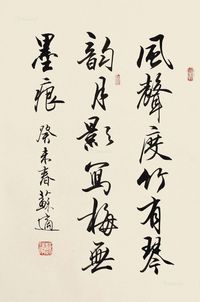 風聲度竹有琴
韵月影寫梅無
墨痕 癸未春蘇適